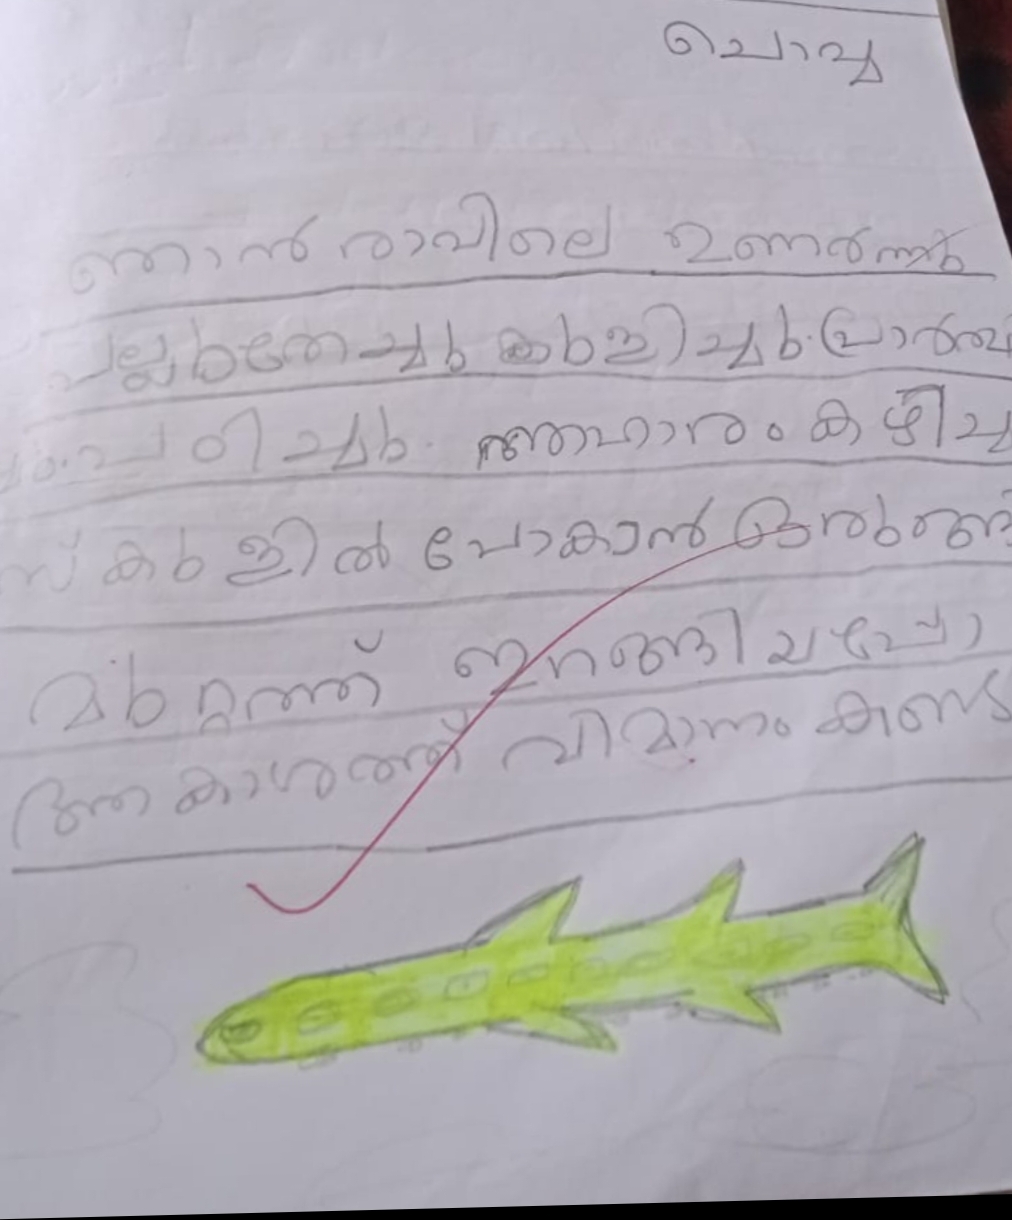 ചൊവ്വ
ഞാൻ രാവിലെ ഉണർന്നു
പല്ലുതേച്ചു കുളിച്ചു. പ്രാർത്ഥ
പഠിച്ചു. ആഹാരം കഴിച്ച
സ്കുളിൽ പോകാൻ ഒരുങ്ങി
മുറ്റത്ത് ഇറങ്ങിയപ്പോ
ആകാശത്ത് വിമാനം കണ്ട